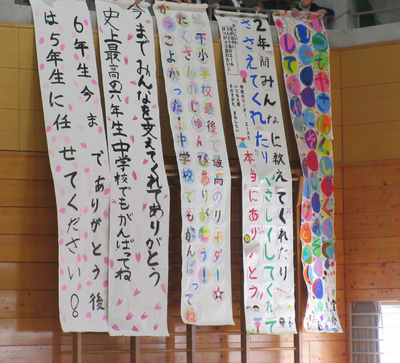 2年間みんなに教えてくれたり
ささえてくれたりやさしくしてくれて
本当にありがとう
小学校最後で最高のリーダー☆
たくさんのじゅんびありがとう!
かっこよかった!中学校でもがんばってね
今までみんなを支えてくれてありがとう
史上最高の六年生中学校でもがんばってね
6年生今までありがとう後
は5年生に任せてください!